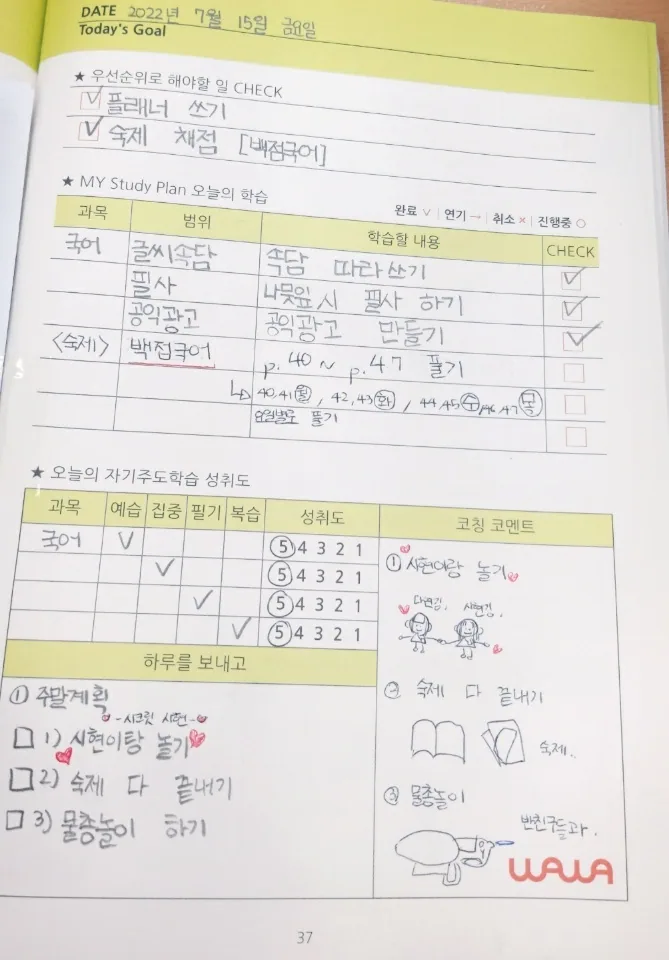 DATE 2022년 7월 15일 금요일
Today's Goal
★ 우선순위로 해야할 일 CHECK
플래너 쓰기
숙제 채점 [백점국어]
★ MY Study Plan 오늘의 학습
완료 ∨ | 연기 → | 취소 × | 진행중 ○
과목 범위 학습할 내용 CHECK
국어 글씨속담 속담 따라쓰기
필사 나뭇잎 시 필사 하기
공익광고 공익광고 만들기
<숙제> 백점국어 p.40 ~ p.47 풀기
↳ 40,41(월), 42,43(화), 44,45(수), 46,47(목)
요일별로 풀기
★ 오늘의 자기주도학습 성취도
과목 예습 집중 필기 복습 성취도
국어 ∨ ⑤ 4 3 2 1
∨ ⑤ 4 3 2 1
∨ ⑤ 4 3 2 1
∨ ⑤ 4 3 2 1
하루를 보내고
① 주말계획
-시크릿 시현-
□ 1) 시현이랑 놀기
□ 2) 숙제 다 끝내기
□ 3) 물총놀이 하기
코칭 코멘트
① 시현이랑 놀기
다현김. 시현김.
② 숙제 다 끝내기
숙제..
③ 물총놀이
반친구들과.
WAWA
37